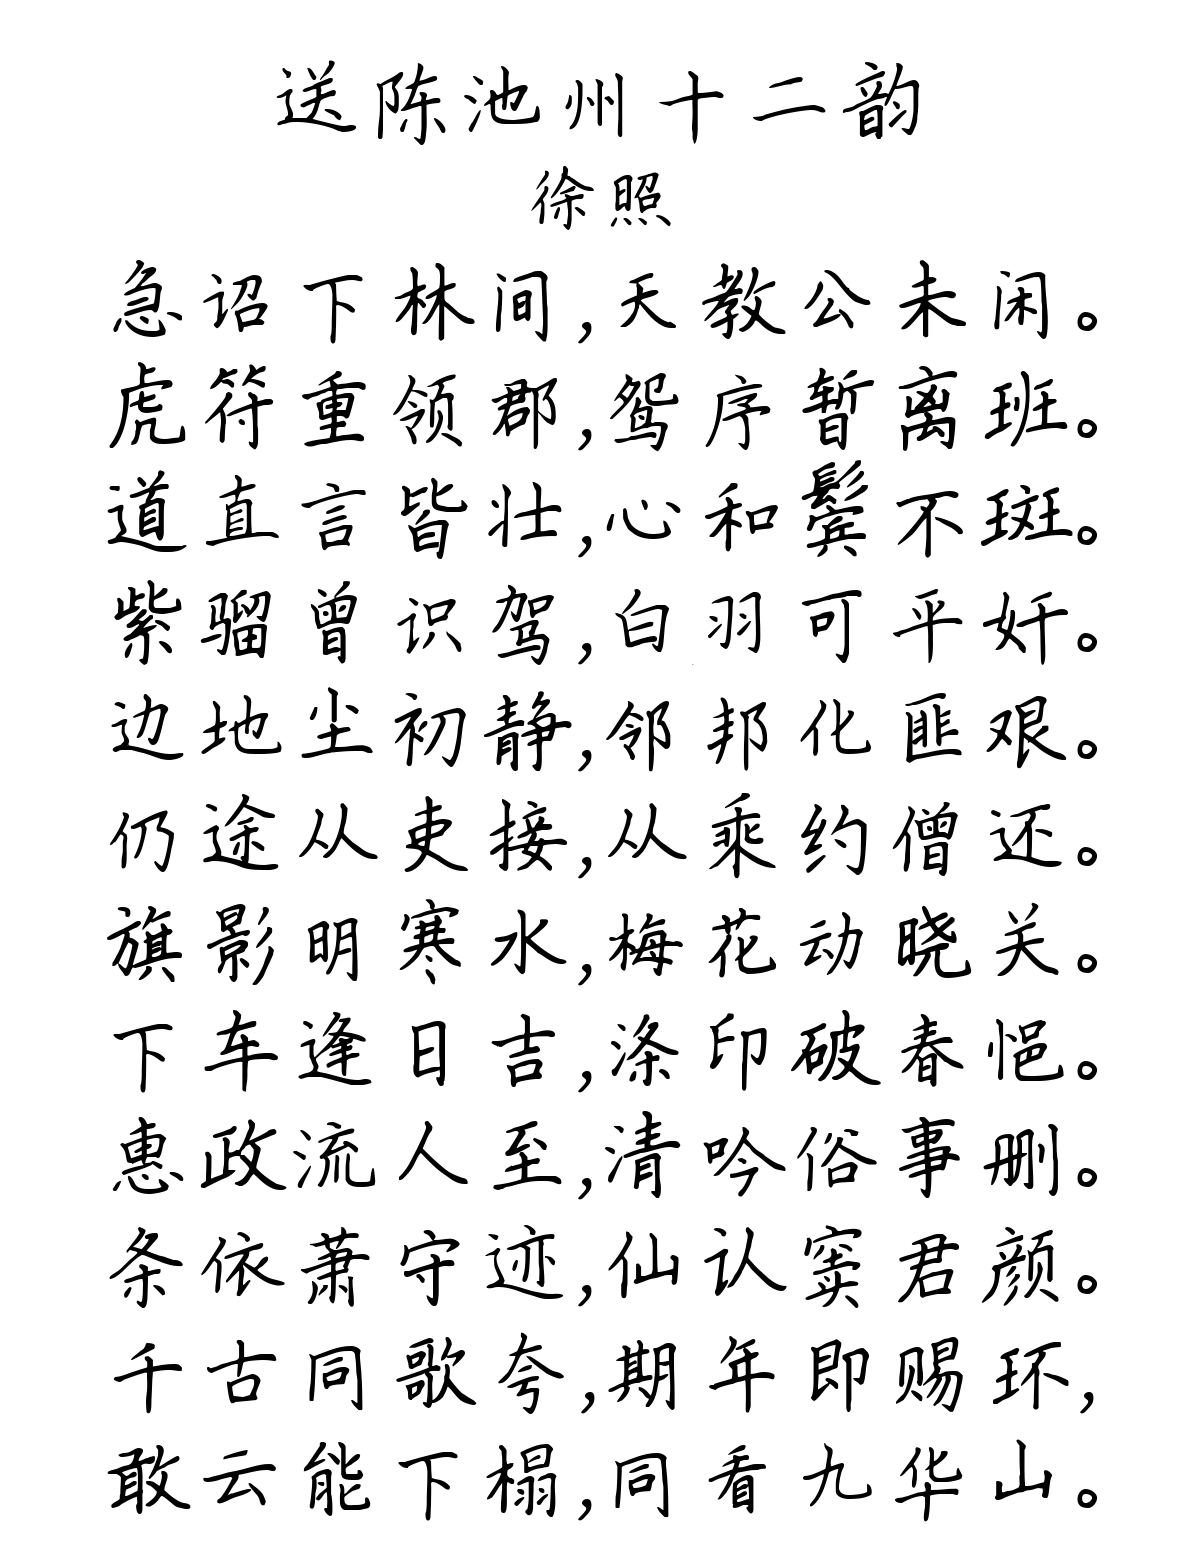 送陈池州十二韵
徐照
急诏下林间,天教公未闲。
虎符重领郡,鸳序暂离班。
道直言皆壮,心和鬓不斑。
紫骝曾识驾,白羽可平奸。
边地尘初静,邻邦化匪艰。
仍途从吏接,从乘约僧还。
旗影明寒水,梅花动晓关。
下车逢日吉,涤印破春悒。
惠政流人至,清吟俗事删。
条依萧守迹,仙认窦君颜。
千古同歌夸,期年即赐环,
敢云能下榻,同看九华山。